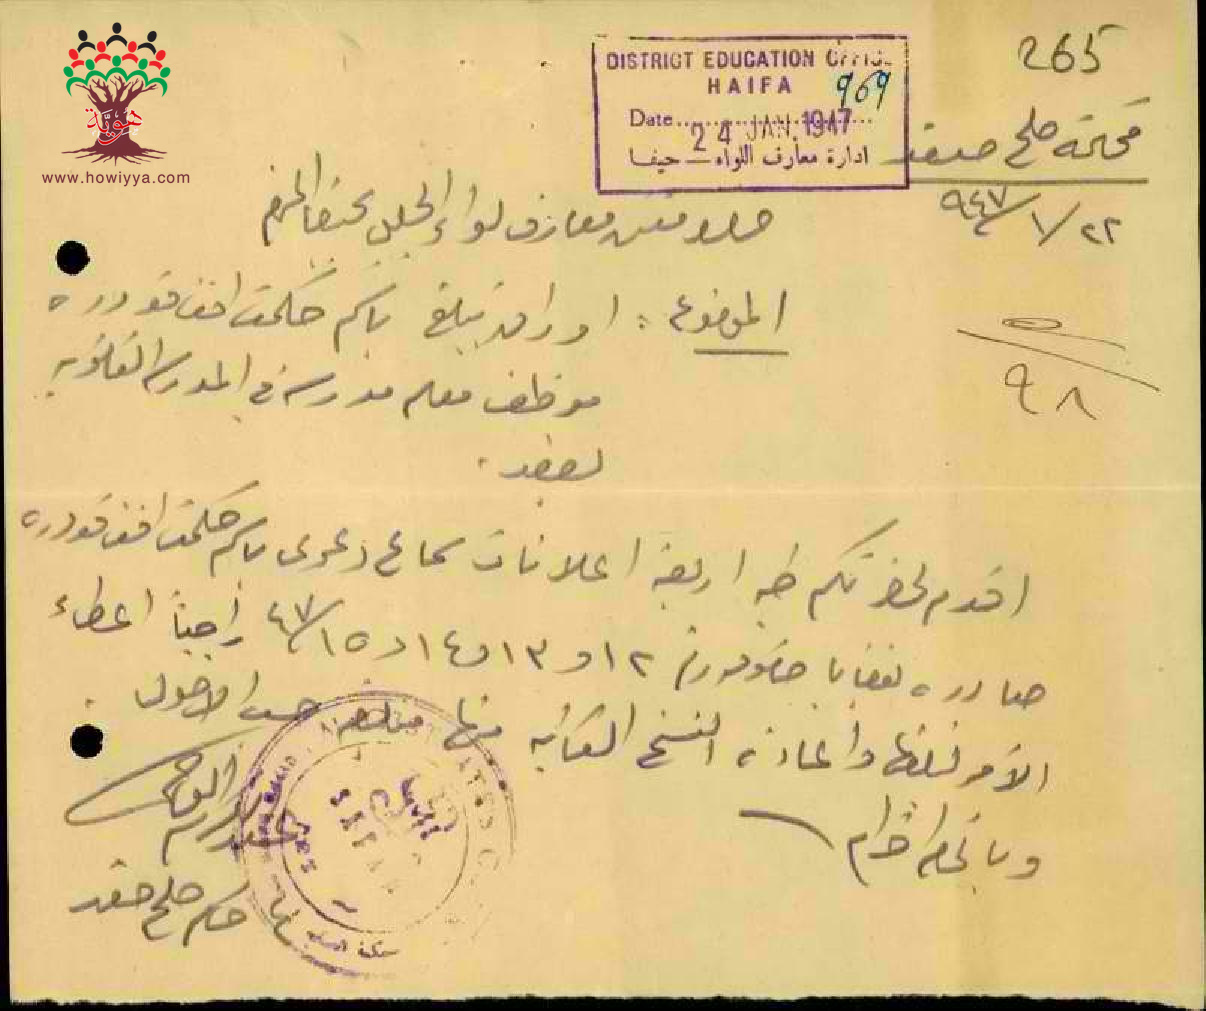 هوية
www.howiyya.com
DISTRICT EDUCATION OFFICE
HAIFA
969
Date ............
24 JAN. 1947
ادارة معارف اللواء — حيفا
265
محكمة صلح صفد
٩٤٧/١/٢٢
٩٨
معارف لواء الجليل بحيفا المحترم
الموضوع : اوراق تبليغ باسم حكمت افندي قدوره
موظف معلم مدرسة في المدرسة الثانويه
بصفد .
اقدم لحضرتكم طيه اربعة اعلانات سماع دعوى باسم حكمت افندي قدوره
صادره بقضايا ١٢ و ١٣ و ١٤ و ١٥/٤٧ راجياً اعطاء
الامر لتبليغها واعادة النسخ الثانيه منها حسب الاصول .
وباحترام
حاكم صلح صفد
SAFAD